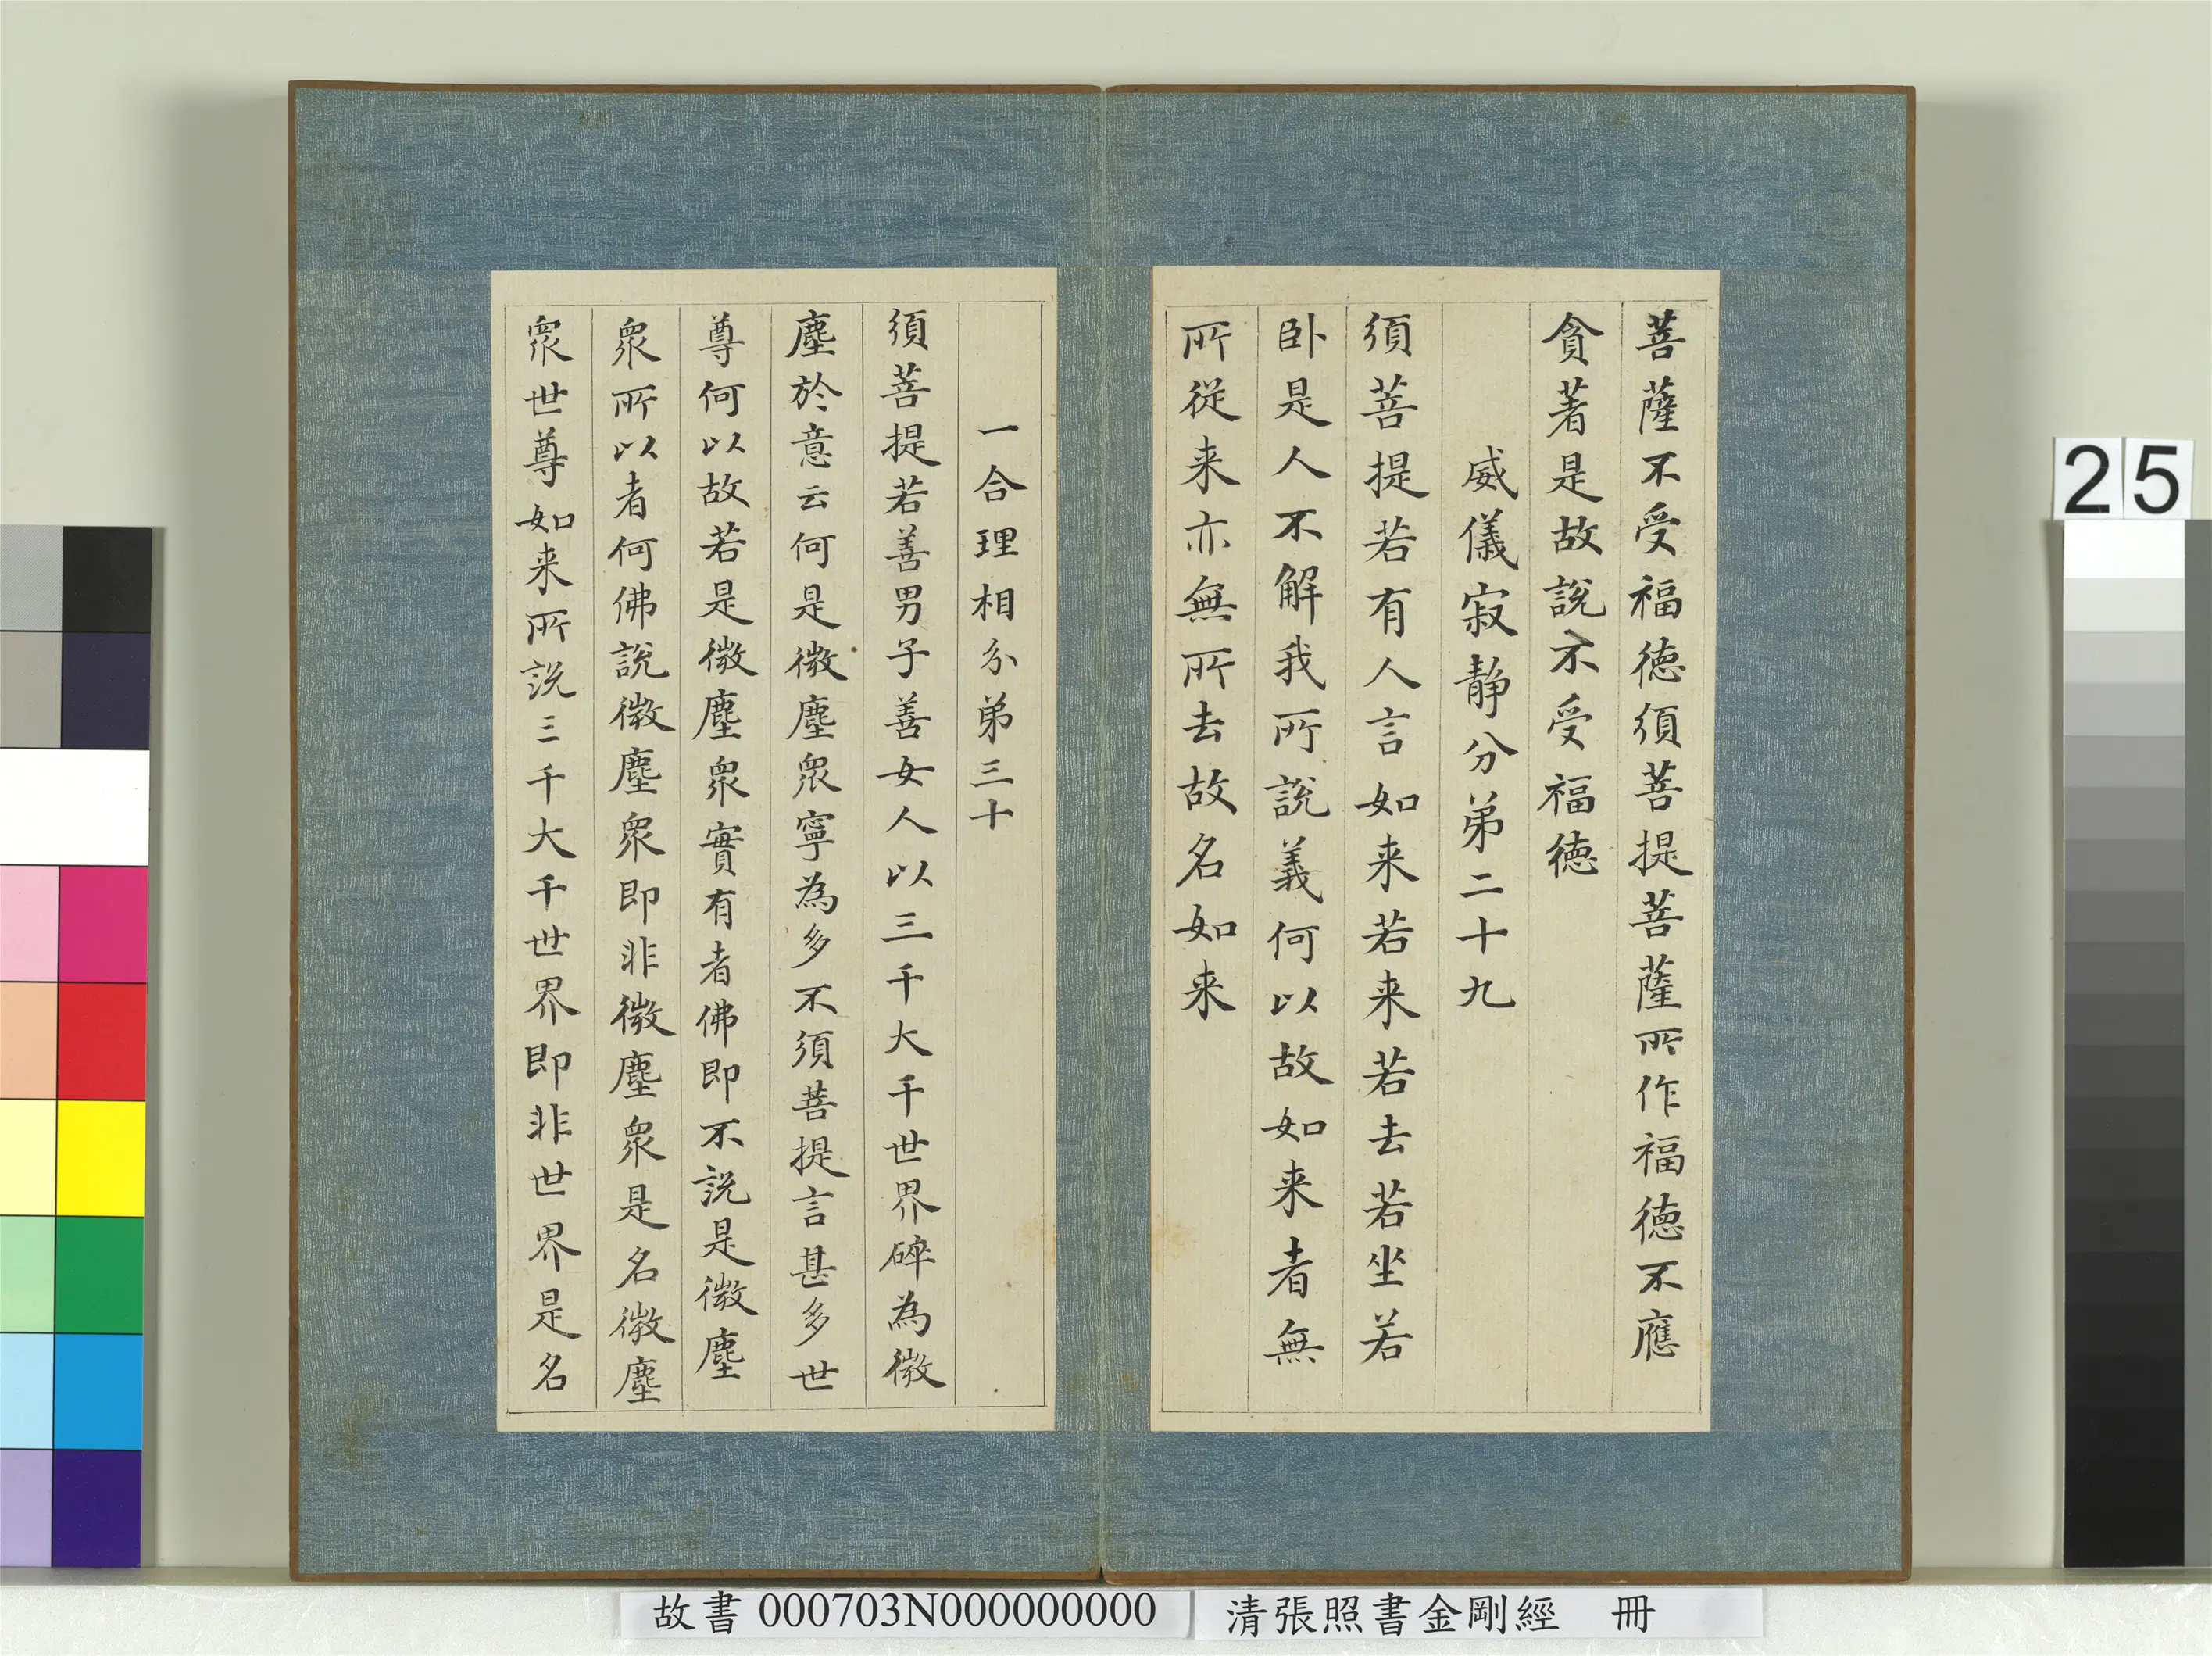 菩薩不受福德須菩提菩薩所作福德不應
貪著是故說不受福德
威儀寂静分弟二十九
須菩提若有人言如来若来若去若坐若
卧是人不解我所說義何以故如来者無
所從来亦無所去故名如来
一合理相分弟三十
須菩提若善男子善女人以三千大千世界碎為微
塵於意云何是微塵眾寧為多不須菩提言甚多世
尊何以故若是微塵眾實有者佛即不說是微塵
眾所以者何佛說微塵眾即非微塵眾是名微塵
眾世尊如来所說三千大千世界即非世界是名
25
故書 000703N000000000
清張照書金剛經 冊